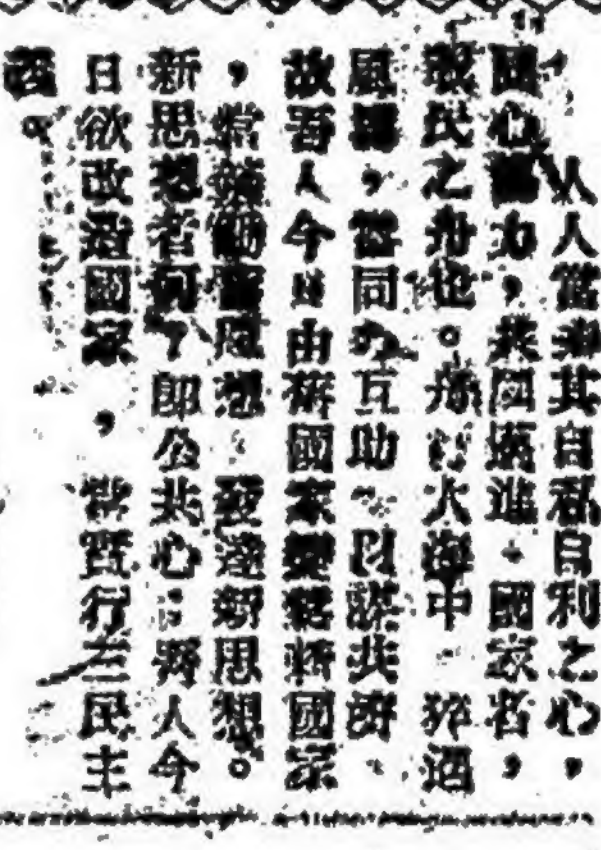 人人當去其自私自利之心，
同心協力，共圖騰進。國家者，
載民之舟也。舟行大海中，猝遇
風濤，當同力互助，以謀共濟，
故吾人今日由舊國家變爲新國家
，當發動舊思想，發達新思想。
新思想者何，即公共心；吾人今
日欲改造國家，當實行三民主
義。